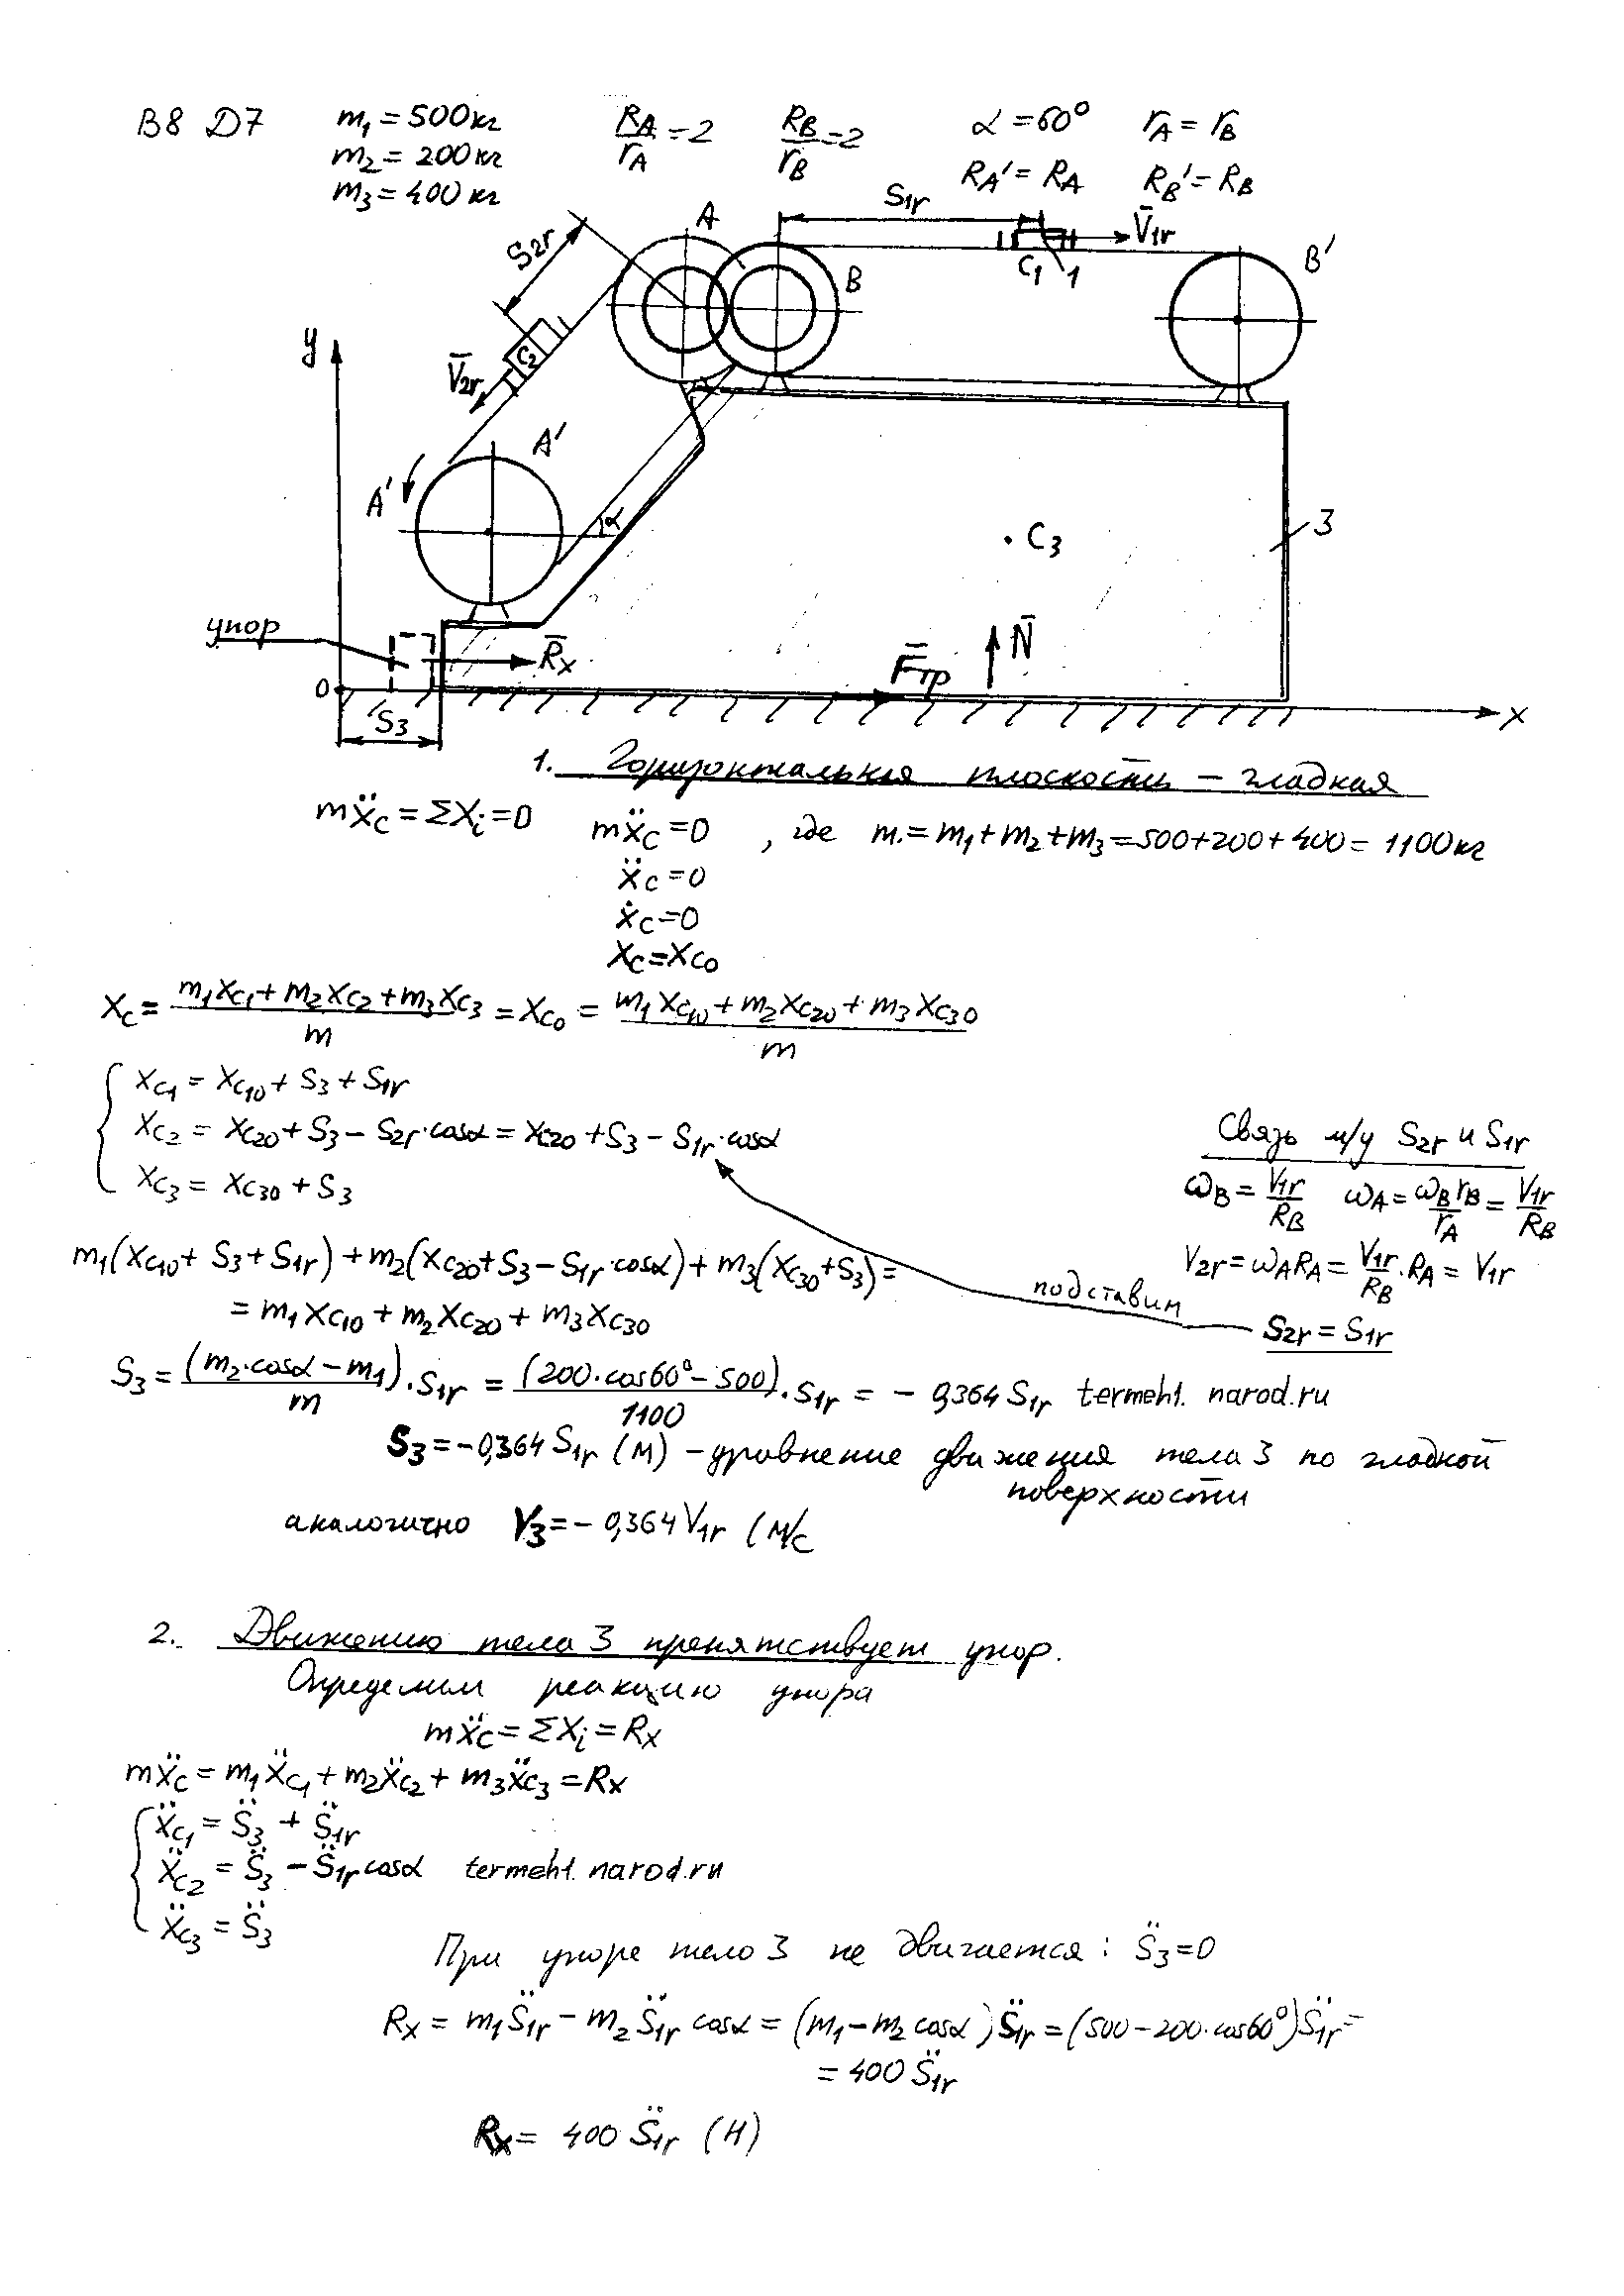 B8 D7
m₁ = 500 кг
m₂ = 200 кг
m₃ = 400 кг
R_A/r_A = 2
R_B/r_B = 2
α = 60°
r_A = r_B
R_A' = R_A
R_B' = R_B
S₁r
A
V̄₁r
S₂r
C₁
1
B
B'
y
C₂
V̄₂r
A'
A'
α
C₃
3
упор
R̄x
N̄
F̄тр
0
S₃
x
1. Горизонтальная плоскость – гладкая
mẍ_C = ΣXᵢ = 0
mẍ_C = 0 , где m = m₁ + m₂ + m₃ = 500 + 200 + 400 = 1100 кг
ẍ_C = 0
ẋ_C = 0
X_C = X_C₀
X_C = (m₁X_C₁ + m₂X_C₂ + m₃X_C₃)/m = X_C₀ = (m₁X_C₁₀ + m₂X_C₂₀ + m₃X_C₃₀)/m
X_C₁ = X_C₁₀ + S₃ + S₁r
X_C₂ = X_C₂₀ + S₃ – S₂r·cosα = X_C₂₀ + S₃ – S₁r·cosα
X_C₃ = X_C₃₀ + S₃
Связь м/у S₂r и S₁r
ω_B = V₁r/R_B ω_A = ω_B r_B/r_A = V₁r/R_B
V₂r = ω_A R_A = V₁r/R_B · R_A = V₁r
подставим
S₂r = S₁r
m₁(X_C₁₀ + S₃ + S₁r) + m₂(X_C₂₀ + S₃ – S₁r·cosα) + m₃(X_C₃₀ + S₃) =
= m₁X_C₁₀ + m₂X_C₂₀ + m₃X_C₃₀
S₃ = (m₂·cosα – m₁)/m · S₁r = (200·cos60° – 500)/1100 · S₁r = – 0,364 S₁r termeh1.narod.ru
S₃ = – 0,364 S₁r (м) – уравнение движения тела 3 по гладкой
поверхности
аналогично V₃ = – 0,364 V₁r (м/с
2. Движению тела 3 препятствует упор.
Определим реакцию упора
mẍ_C = ΣXᵢ = Rx
mẍ_C = m₁ẍ_C₁ + m₂ẍ_C₂ + m₃ẍ_C₃ = Rx
ẍ_C₁ = S̈₃ + S̈₁r
ẍ_C₂ = S̈₃ – S̈₁r cosα termeh1.narod.ru
ẍ_C₃ = S̈₃
При упоре тело 3 не двигается: S̈₃ = 0
Rx = m₁S̈₁r – m₂S̈₁r cosα = (m₁ – m₂ cosα)S̈₁r = (500 – 200·cos60°)S̈₁r =
= 400 S̈₁r
Rx = 400 S̈₁r (Н)